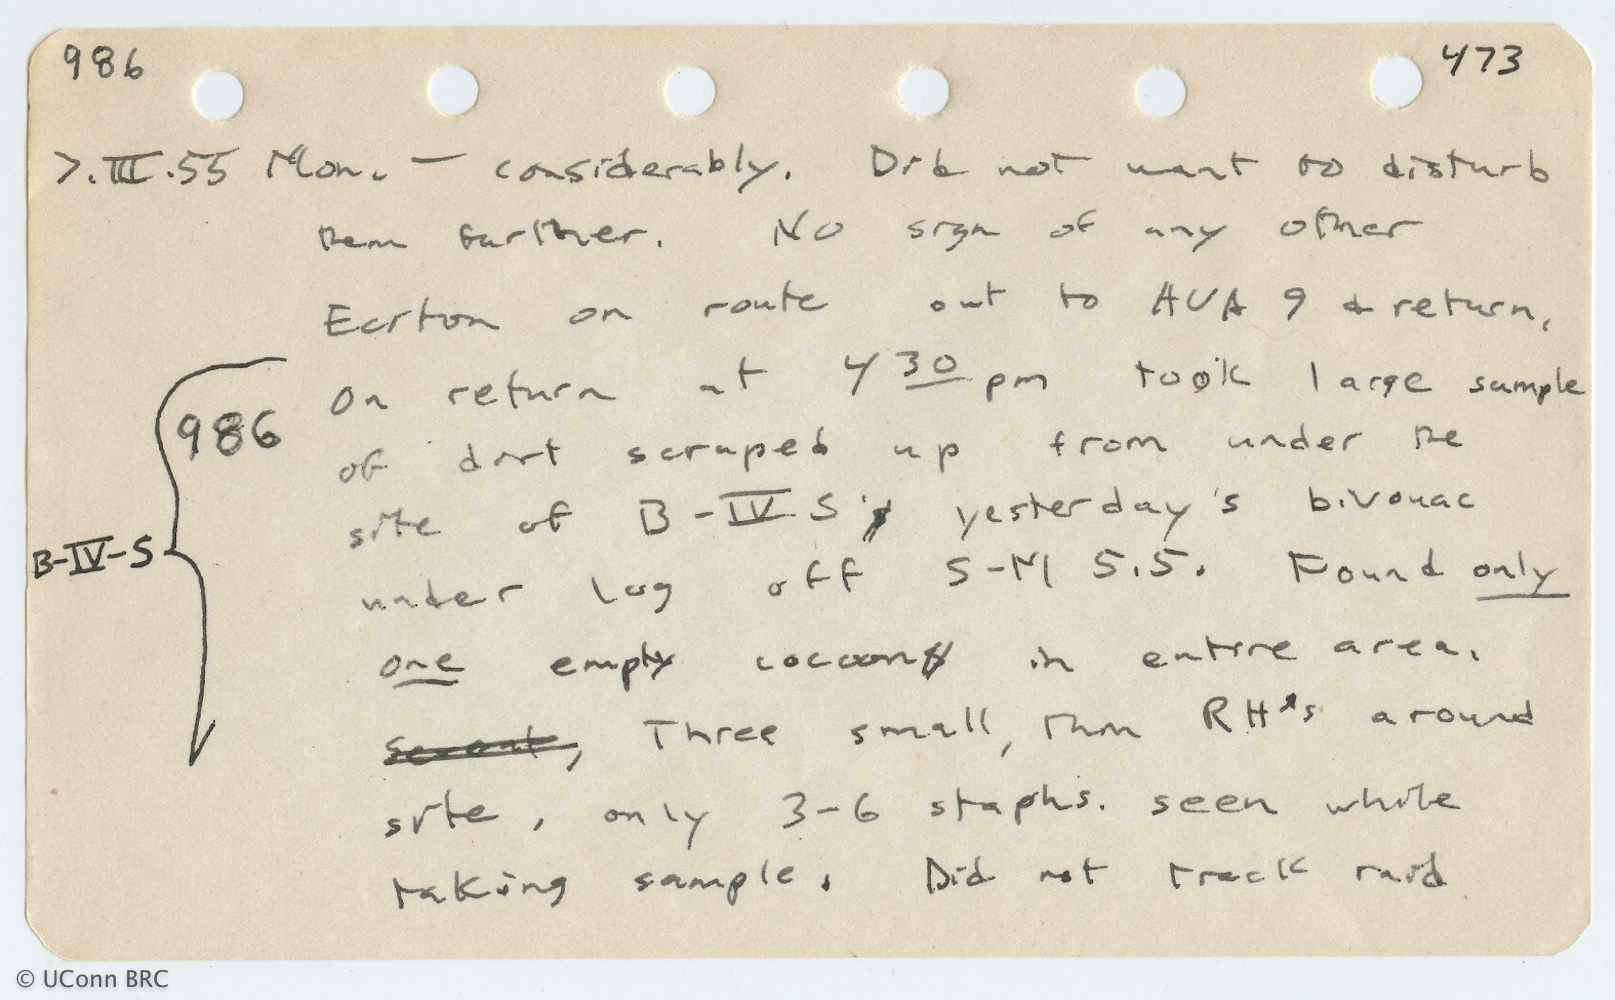 986
473
7.III.55 Mon. — considerably. Did not want to disturb
them further. No sign of any other
Eciton on route out to AVA 9 & return.
On return at 4 30 pm took large sample
986
of dirt scraped up from under the
site of B-IV-S, yesterday's bivouac
B-IV-S
under log off S-M 5.5. Found only
one empty cocoon in entire area.
Three small, thin RH's around
site, only 3-6 staphs. seen while
taking sample. Did not track raid
© UConn BRC